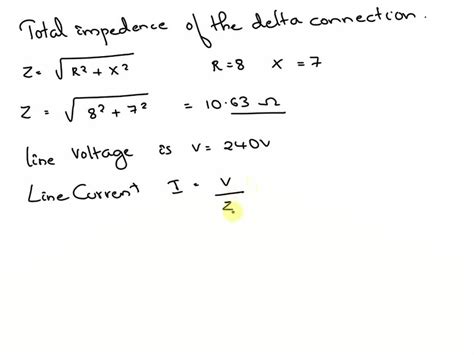 Total impedence of the delta connection.
Z = √R² + X² R = 8 X = 7
Z = √8² + 7² = 10.63 Ω
Line Voltage is V = 240V
Line Current I = V/Z